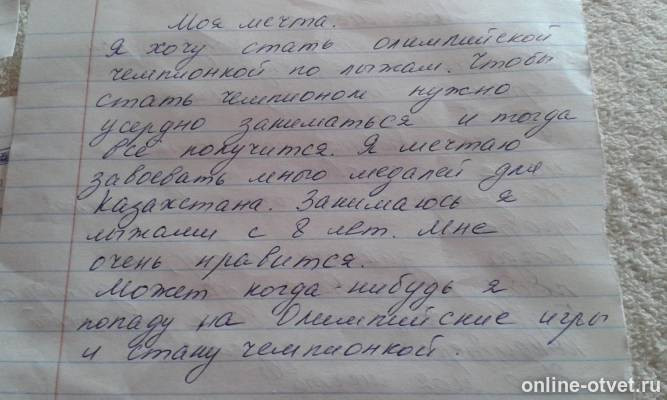 Моя мечта.
Я хочу стать олимпийской
чемпионкой по лыжам. Чтобы
стать чемпионом нужно
усердно заниматься и тогда
всё получится. Я мечтаю
завоевать много медалей для
Казахстана. Занимаюсь я
лыжами с 8 лет. Мне
очень нравится.
Может когда-нибудь я
попаду на Олимпийские игры
и стану чемпионкой.
online-otvet.ru